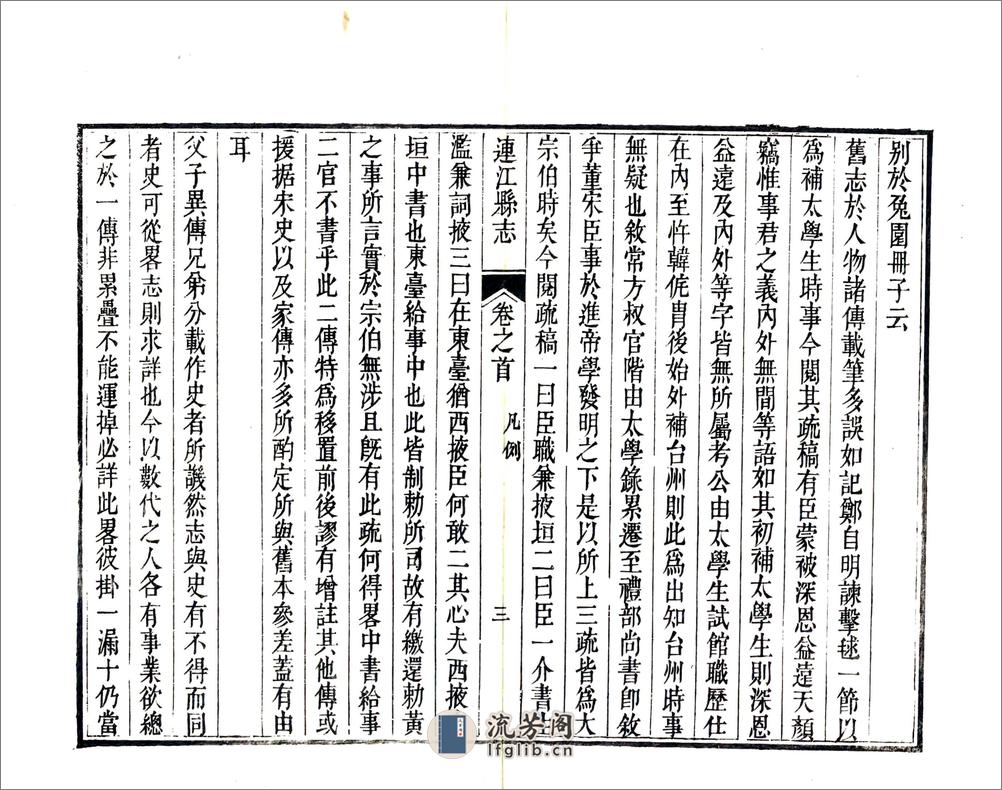 別於兔園冊子云
舊志於人物諸傳載筆多誤如記鄭自明諫擊毬一節以
為補太學生時事今閱其疏稿有臣蒙被深恩益遠天顏
竊惟事君之義內外無間等語如其初補太學生則深恩
益遠及內外等字皆無所屬考公由太學生試館職歷仕
在內至忤韓侂胄後始外補台州則此為出知台州時事
無疑也敘常方叔官階由太學錄累遷至禮部尚書卽敘
爭董宋臣事於進帝學發明之下是以所上三疏皆為大
宗伯時矣今閱疏稿一曰臣職兼掖垣二曰臣一介書生
連江縣志
卷之首
凡例
三
濫兼詞掖三曰在東臺猶西掖臣何敢二其心夫西掖
垣中書也東臺給事中也此皆制勅所司故有繳還勅黃
之事所言實於宗伯無涉且旣有此疏何得畧中書給事
二官不書乎此二傳特為移置前後謬有增註其他傳或
援据宋史以及家傳亦多所酌定所與舊本參差蓋有由
耳
父子異傳兄弟分載作史者所譏然志與史有不得而同
者史可從畧志則求詳也今以數代之人各有事業欲總
之於一傳非累疊不能運掉必詳此畧彼掛一漏十仍當
流芳阁
lfglib.cn